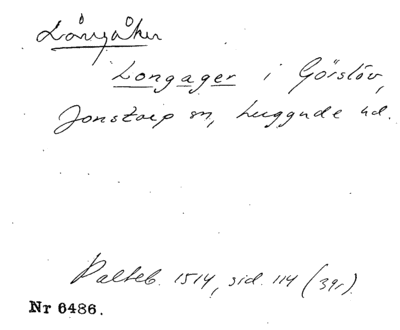 Långåker
Longager i Görslöv,
Jonstorp sn, Luggude hd.
Palteb. 1514, sid. 114 (39r).
Nr 6486.